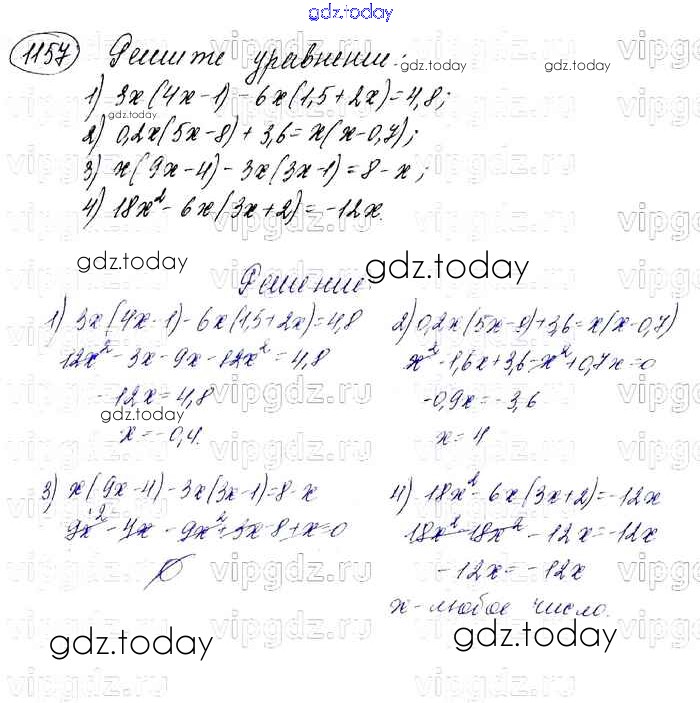 gdz.today
1157 Решите уравнение:
gdz.today
gdz.today
1) 3x(4x-1)-6x(1,5+2x)=4,8;
gdz.today
2) 0,2x(5x-8)+3,6=x(x-0,7);
3) x(9x-4)-3x(3x-1)=8-x;
4) 18x²-6x(3x+2)=-12x.
gdz.today
gdz.today
Решение:
1) 3x(4x-1)-6x(1,5+2x)=4,8
12x²-3x-9x-12x²=4,8
-12x=4,8
gdz.today
x=-0,4.
2) 0,2x(5x-8)+3,6=x(x-0,7)
x²-1,6x+3,6-x²+0,7x=0
-0,9x=-3,6
x=4
3) x(9x-4)-3x(3x-1)=8-x
9x²-4x-9x²+3x-8+x=0
∅
4) 18x²-6x(3x+2)=-12x
18x²-18x²-12x=-12x
-12x=-12x
x-любое число.
gdz.today
gdz.today
vipgdz.ru